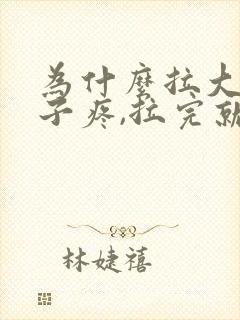 为什麽拉大
子疼,拉完就
林婕禧